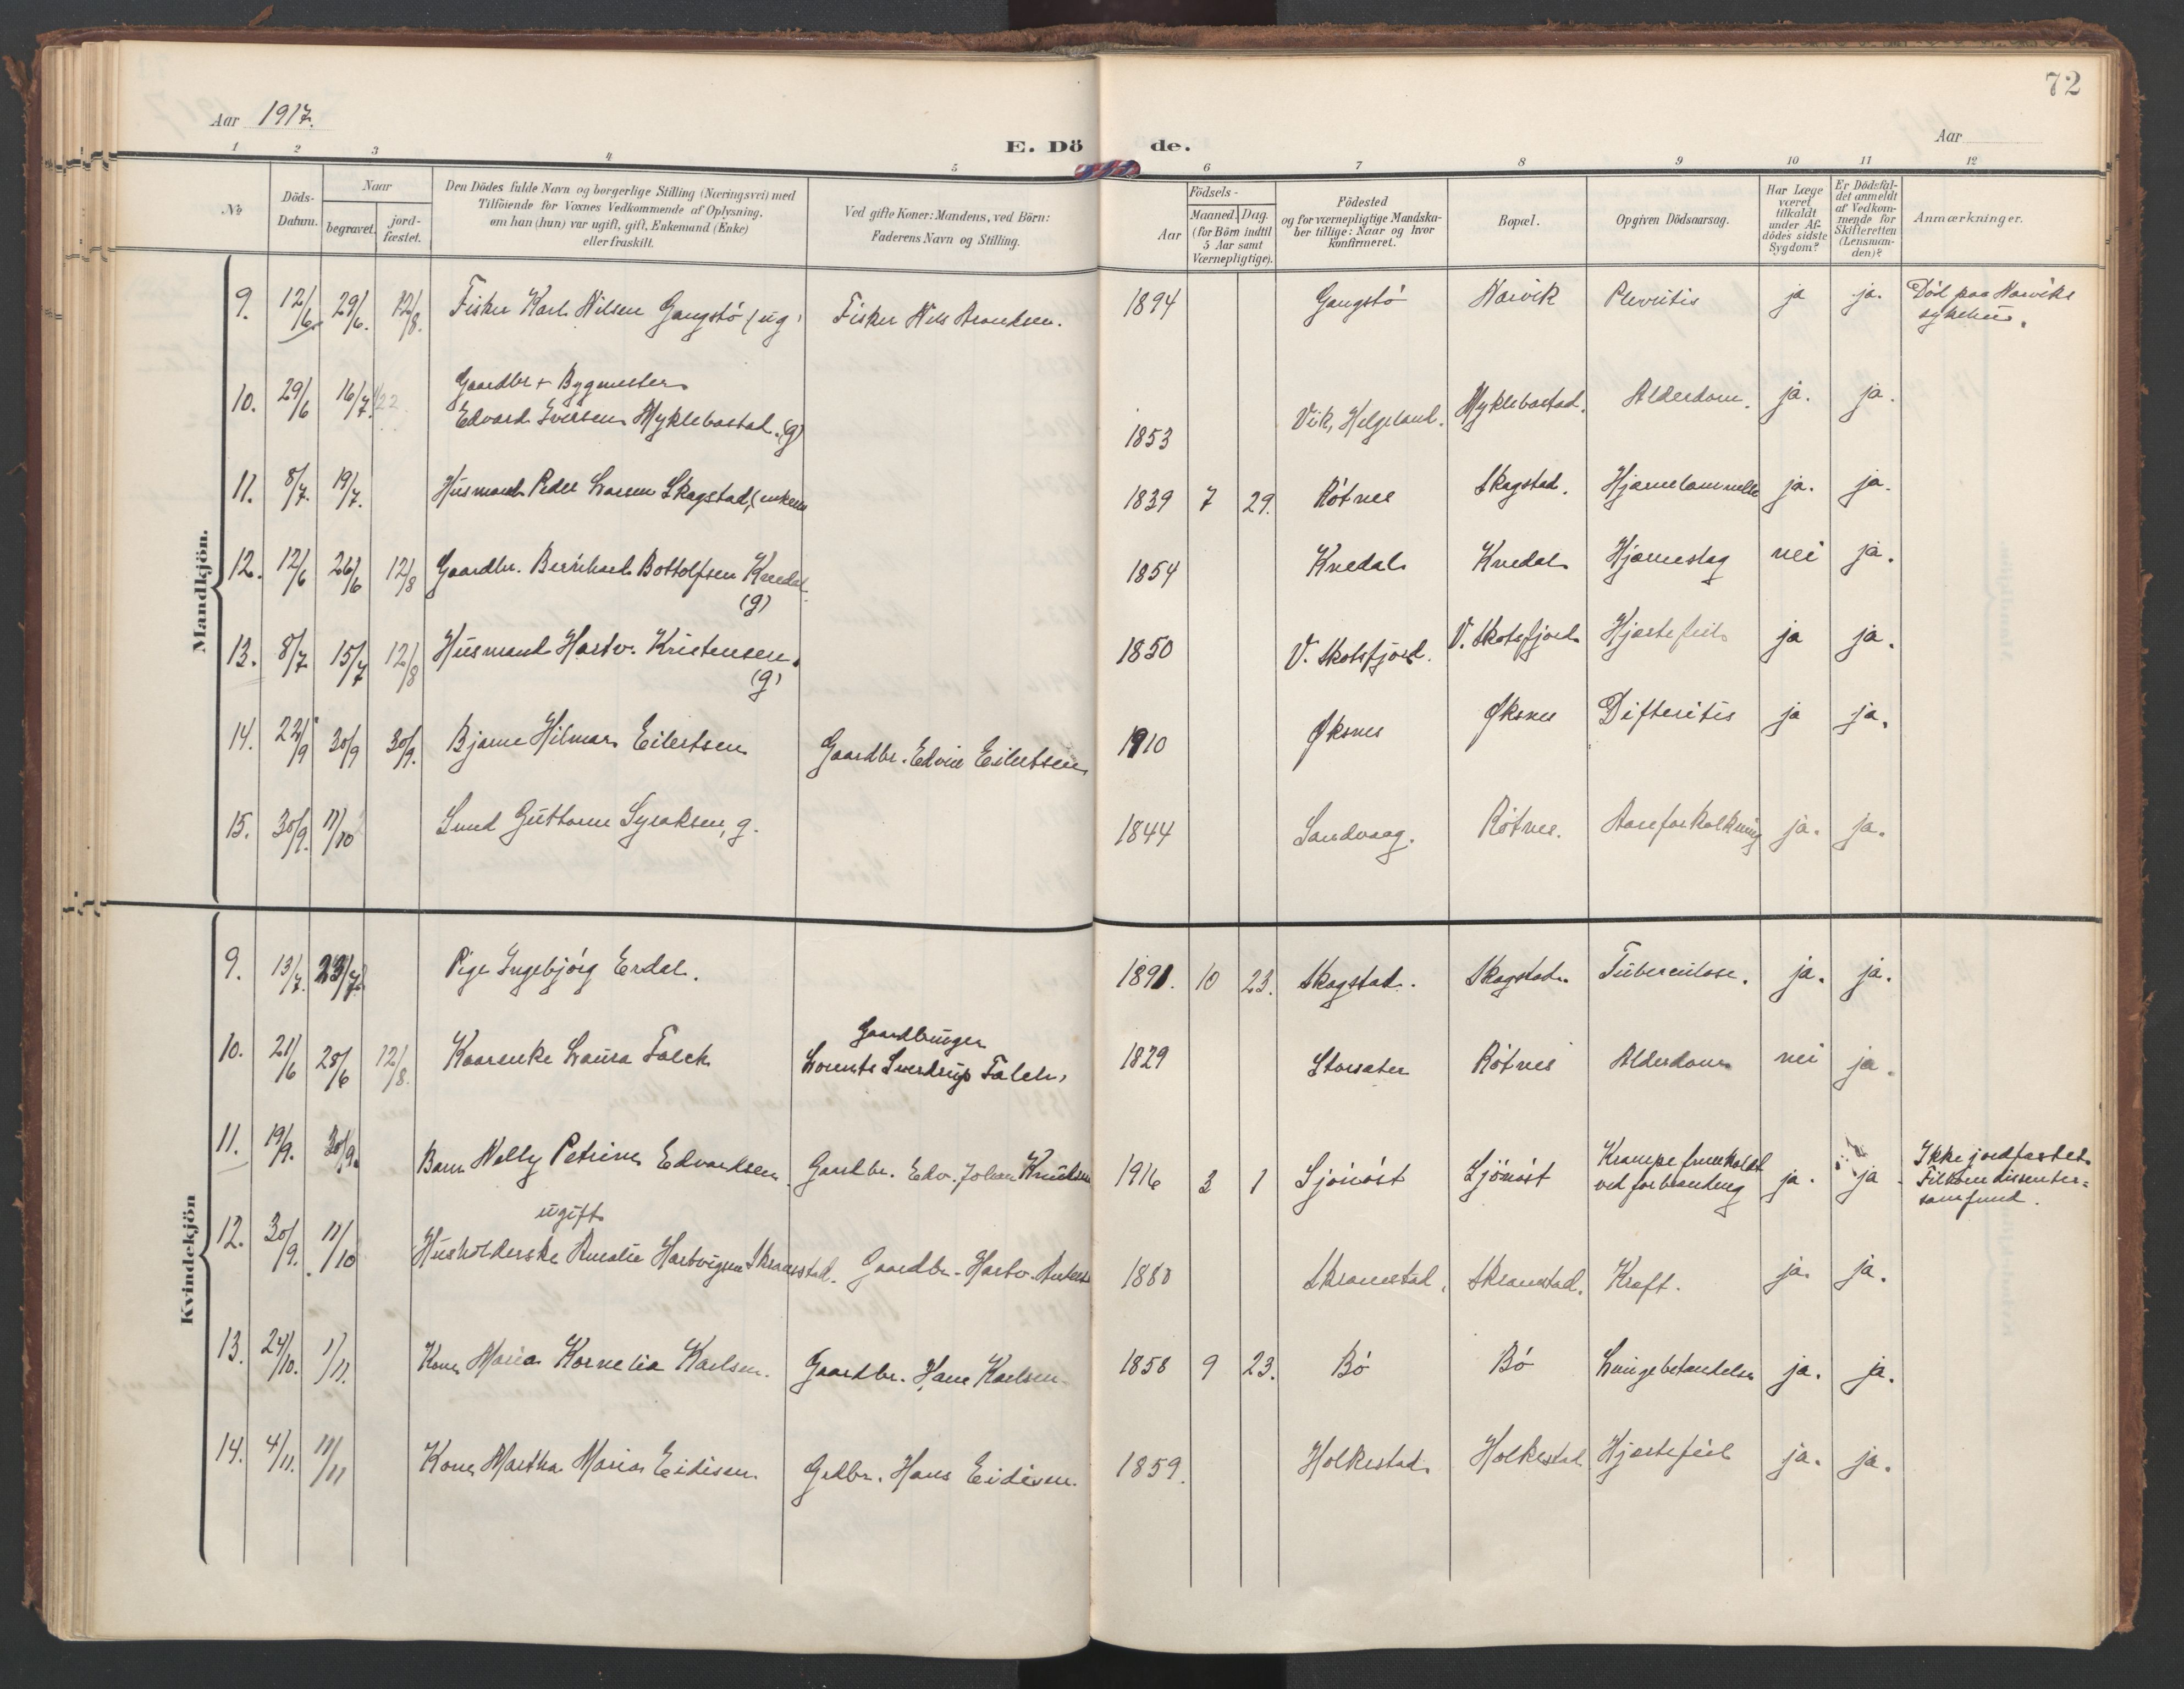 72
Aar 1917.
E. Döde.
Aar
1 2 3 4 5 6 7 8 9 10 11 12
No
Döds-Datum.
Naar
begravet.
jordfæstet.
Den Dödes fulde Navn og borgerlige Stilling (Næringsvei) med
Tilföiende for Voxnes Vedkommende af Oplysning,
om han (hun) var ugift, gift, Enkemand (Enke)
eller fraskilt.
Ved gifte Koner: Mandens, ved Börn:
Faderens Navn og Stilling.
Födsels-
Aar
Maaned. Dag.
(for Börn indtil
5 Aar samt
Værnepligtige).
Födested
og for værnepligtige Mandskaber tillige: Naar og hvor
konfirmeret.
Bopæl.
Opgiven Dödsaarsag.
Har Læge
været
tilkaldt
under Afdödes sidste
Sygdom?
Er Dödsfaldet anmeldt
af Vedkommende for
Skifteretten
(Lensmanden)?
Anmærkninger.
Mandkjön.
9. 12/6 29/6. 12/8. Fisker Karl Nilsen Gangstö (ug) Fisker Nils Arontsen. 1894 Gangstö Narvik Plevritis ja ja. Död paa Narviks
sykehus.
Gaardbr + Bygmester
10. 29/6 16/7. Edvard Iversen Myklebostad. (g) 1853 Vik, Helgeland. Myklebostad. Alderdom. ja. ja.
11. 8/7. 19/7. Husmand Peder Larsen Skagstad, (enkem 1839 7 29. Rötnes Skagstad. Hjernelammelse ja. ja.
12. 12/6 26/6 12/8 Gaardbr. Bernhard Bottolfsen Kvedal.
(g) 1854 Kvedal Kvedal Hjerneslag nei ja.
13. 8/7. 15/7 12/8 Husmand Hartv. Kristensen.
(g) 1850 V. Skotsfjord. V. Skotsfjord Hjertefeil ja ja.
14. 22/9 30/9 30/9. Bjarne Hilmar Eilertsen Gaardbr. Edvin Eilertsen 1910 Øksnes Øksnes Difteritis ja ja.
15. 30/9. 11/10 Lund Guttorm Syraksen, g. 1844 Sandvaag. Rötnes. Aareforkalkning ja. ja.
Kvindekjön
9. 13/7. 23/7. Pige Ingebjörg Erdal. 1891. 10 23. Skagstad. Skagstad. Tuberculose. ja. ja.
Gaardbruger
10. 21/6 28/6 12/8. Kaarenke Laura Falch Lorents Sverdrup Falch. 1829 Storsæter Rötnes Alderdom nei ja.
11. 19/9. 30/9. Barn Nelly Petrine Edvardsen. Gaardbr. Edv. Johan Knudsen 1916 3 1 Sjönöst Sjönöst Krampe fremkaldt
ved forbrænding ja. ja Ikke jordfæstet.
Tilhörer dissenter=
samfund.
ugift
12. 30/9. 11/10 Husholderske Amalie Hartvigsen Skranstad. Gaardbr. Hartv. Anders 1880 Skranstad. Skranstad. Kræft. ja. ja.
13. 24/10. 1/11. Kone Maria Kornelia Karlsen. Gaardbr. Hans Karlsen. 1858 9 23. Bö Bö Lungebetændelse ja. ja.
14. 4/11. 11/11 Kone Martha Maria Eidisen. Grdbr. Hans Eidisen. 1859. Holkestad Holkestad Hjertefeil ja. ja.